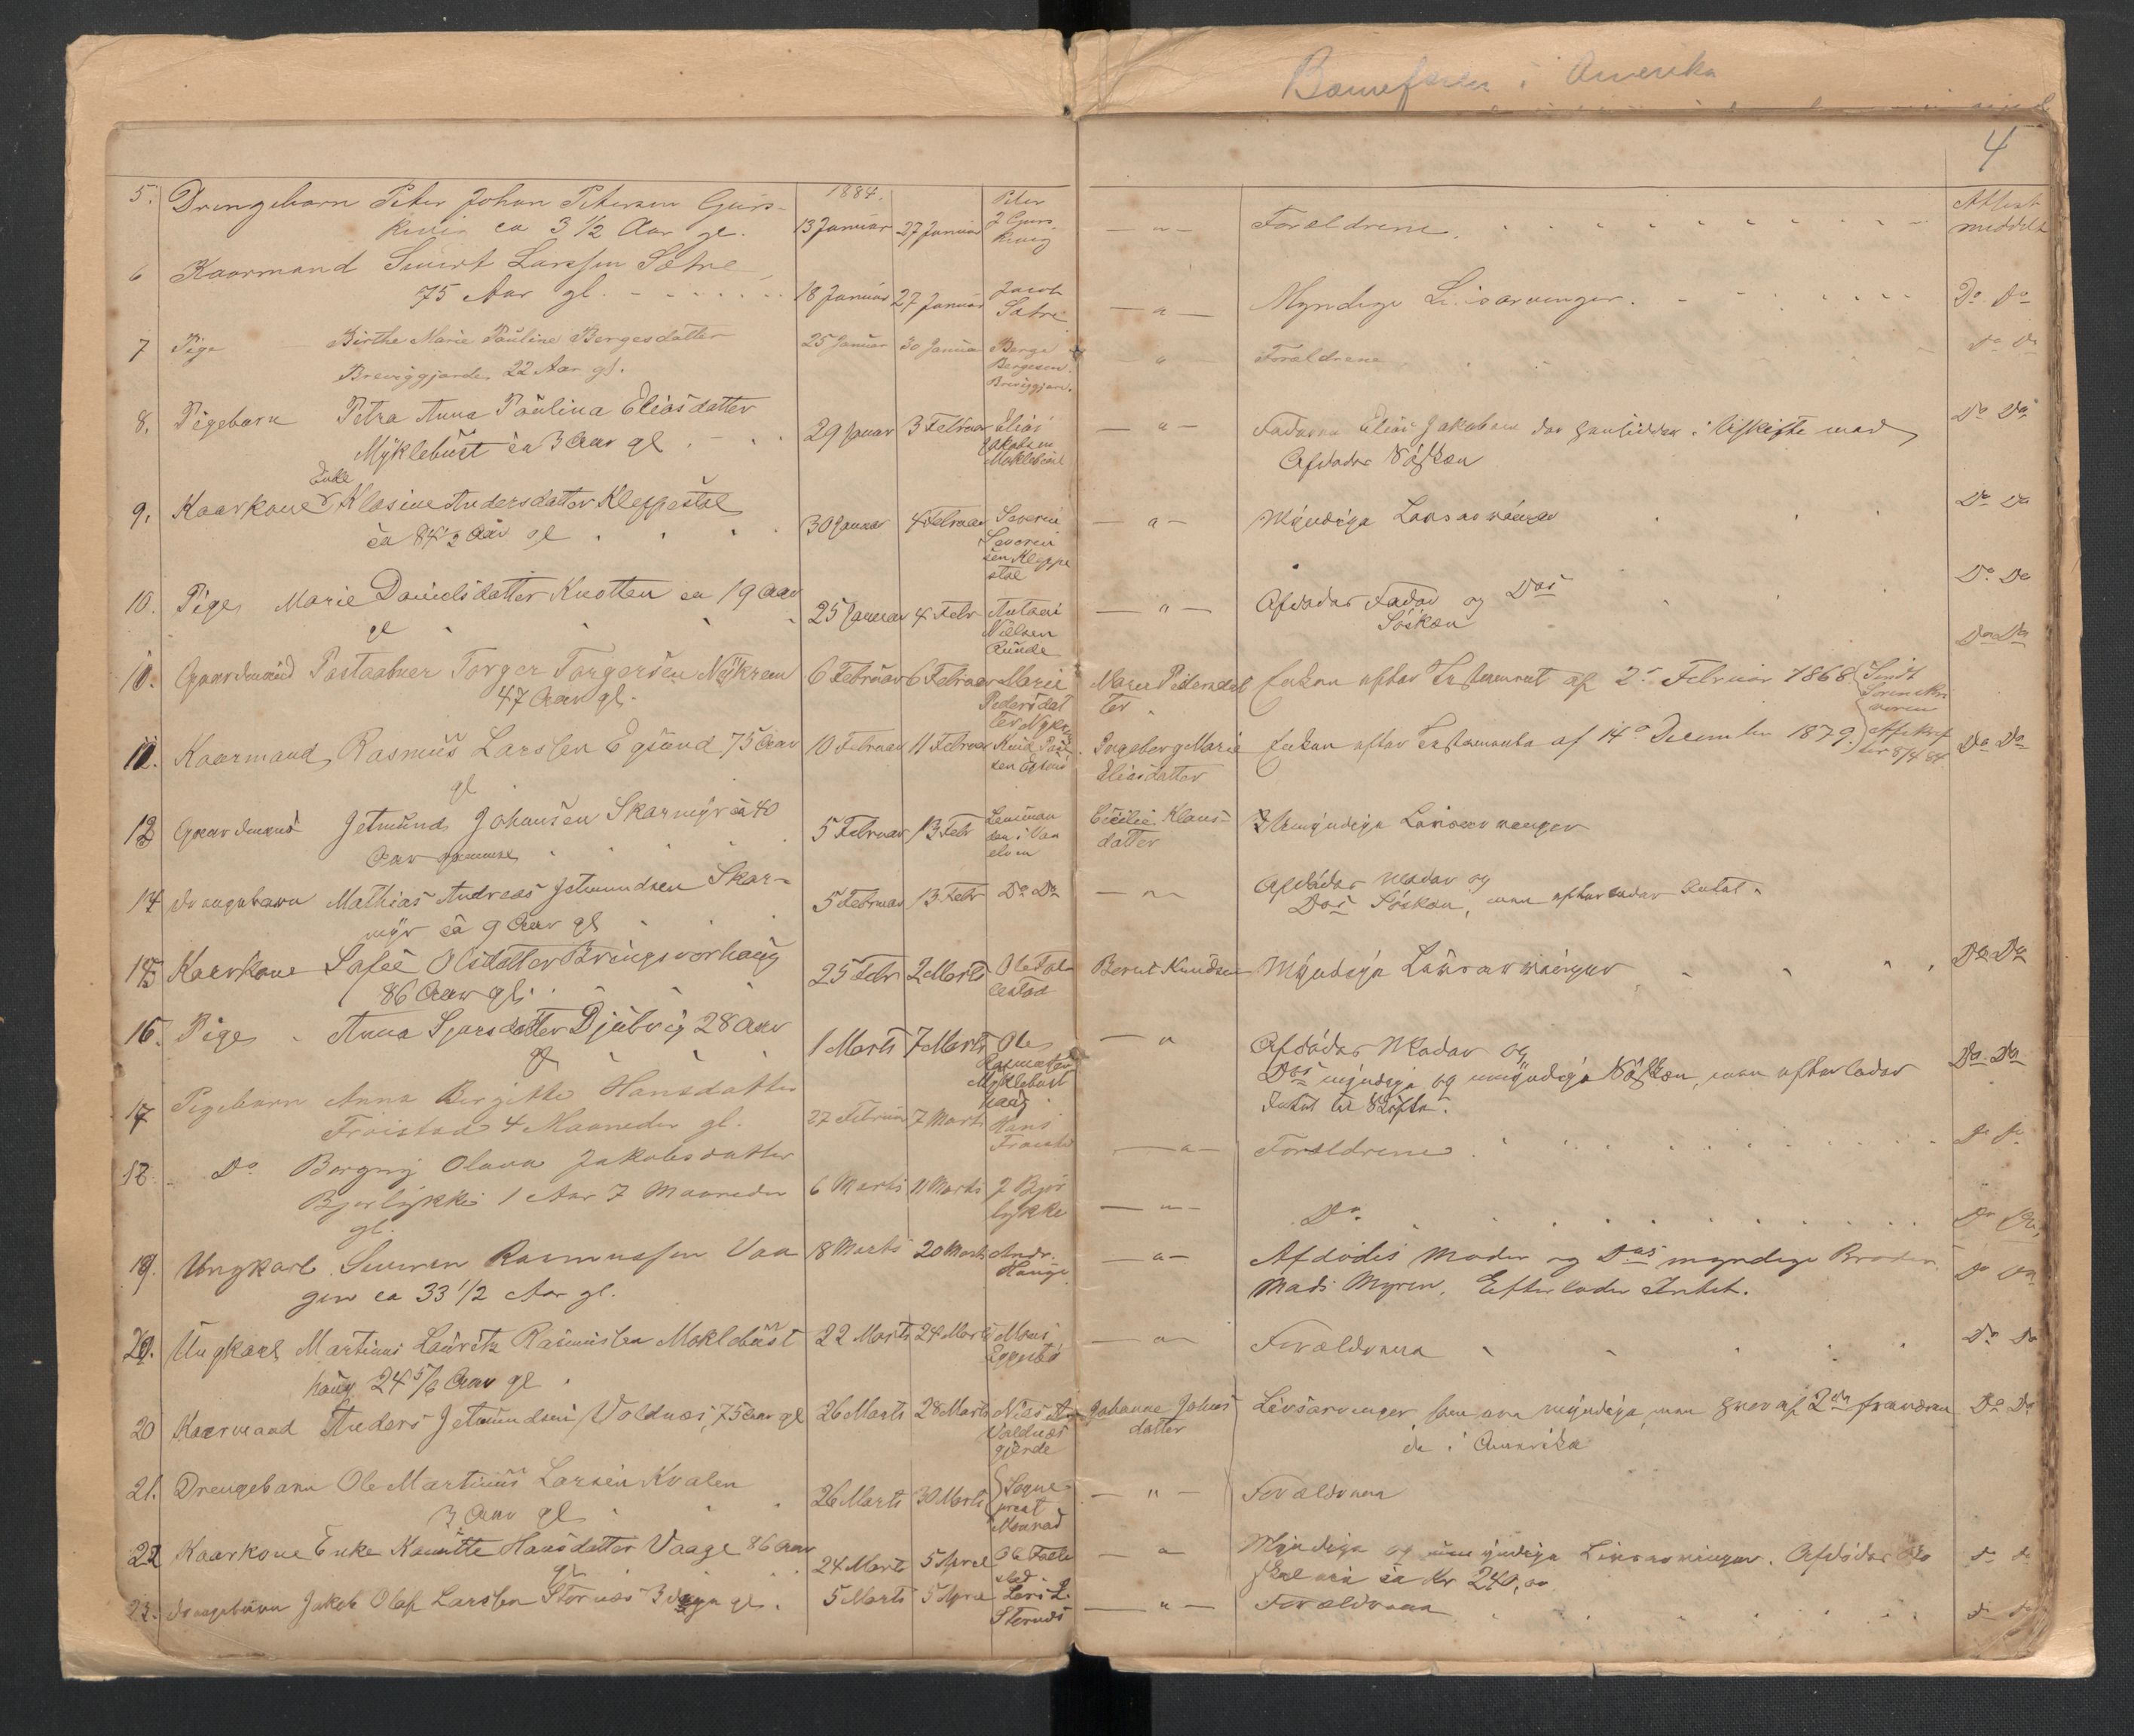 i Amerika
4
1884.
5. Drengebarn Peter Johan Petersen Gurs-
kevig ca 3 1/2 Aar gl. 13 Januar 27 Januar Peter J Gurskevig — " — Forældrene. Attest meddelt
6 Kaarmand Sivert Larssen Sætre
75 Aar gl. 18 Januar 27 Januar Jacob Sætre — " — Myndige Livsarvinger. Do Do
7 Pige Birthe Marie Pauline Bergesdatter 25 Januar 30 Januar Berge Bergesen — " Forældrene Do Do
22 Aar gl.
8. Pigebarn Petra Anna Paulina Eliasdatter
Myklebust ca 3 Aar gl 29 Januar 3 Februar Elias Jakobsen Moklebust — " — Faderen Elias Jakobsen der hensidder i uskiftet med Do Do
Afdødes Søsken
Enke
9. Kaarkone Klasine Andersdatter Kleppestøl
ca 84 1/2 Aar gl 30 Januar 4 Februar Severin Severinsen Kleppestøl — " — Myndige Livsarvinger Do Do
10. Pige Marie Danielsdatter Knotten ca 19 Aar
gl 25 Januar 4 Febr Nielsen Runde — " — Afdødes Fader og Ds Do Do
Søsken
11. Gaardmand Postaabner Torger Torgersen Nykrem 6 Februar 6 Februar Marie Pedersdatter Marie Pedersdatter Enken efter Testament af 2 Februar 1868 Sendt Sorenskriveren Do Do
47 Aar gl.
12. Kaarmand Rasmus Larssen Egsund 75 Aar 10 Februar 11 Februar Ingeborg Marie Eliasdatter Enken efter Testamente af 14 December 1879. Do Do
gl
13 Gaardmand Jetmund Johansen Skarmyr ca 40 5 Februar 13 Febr Lensmanden i Vanelven Cicilie Klausdatter Umyndige Livsarvinger
Aar gammel
14 Drengebarn Mathias Andreas Jetmundsen Skar-
myr ca 9 Aar gl 5 Februar 13 Febr Do Do — " Afdødes Moder og
Ds Søsken, men efterlader Intet.
15 Kaarkone Olsdatter Bringsvorhaug
86 Aar gl. 25 Febr 2 Marts Ole Bernt Knudsen Myndige Livsarvinger Do Do
16. Pige Anna Sjursdatter Djubvig 28 Aar
gl 1 Marts 7 Marts Ole Rasmussen Myklebusthaug — " Afdødes Moder og
Ds myndige og umyndige Søsken, men efterlader Do Do
Intet til Skifte.
17 Pigebarn Anna Birgitte Hansdatter
Frøistad 4 Maaneder gl. 27 Februar 7 Marts Hans — " — Forældrene Do Do
18. Do Borgny Olava Jakobsdatter
Bjørlykke 1 Aar 7 Maaneder 6 Marts 11 Marts J Bjørlykke — " — Do Do Do
gl.
19. Ungkarl Severin Rasmussen Vaa- 18 Marts 20 Marts Andr. Hauge — " — Afdødes Moder og Ds myndige Broder Do Do
gen ca 33 1/2 Aar gl. Mads Myren. Efterlader Intet.
20. Ungkarl Martinus Lauritz Rasmussen Moklebust 22 Marts 24 Marts Mons — " — Forældrene Do Do
haug 24 5/6 Aar gl
20 Kaarmand Anders Jetmundsen Voldnes, 75 Aar gl 26 Marts 28 Marts Voldnesgjerde Johanne Johnsdatter Livsarvinger som ere myndige men hvoraf 2de fraværen Do Do
de i Amerika
21. Drengebarn Ole Martinus Larsen Kvalen
3 Aar gl 26 Marts 30 Marts Sogneprest Monrad — " — Forældrene
22 Kaarkone Enke Hansdatter Vaage 86 Aar
gl 24 Marts 5 April Ole — " Myndige og umyndige Livsarvinger. Afdødes Do Do
ca Kr 240,00
23. Drengebarn Jakob Olaf Larssen Stornes 3 dage gl. 5 Marts 5 April Lars L. Stornes — " — Forældrene Do Do